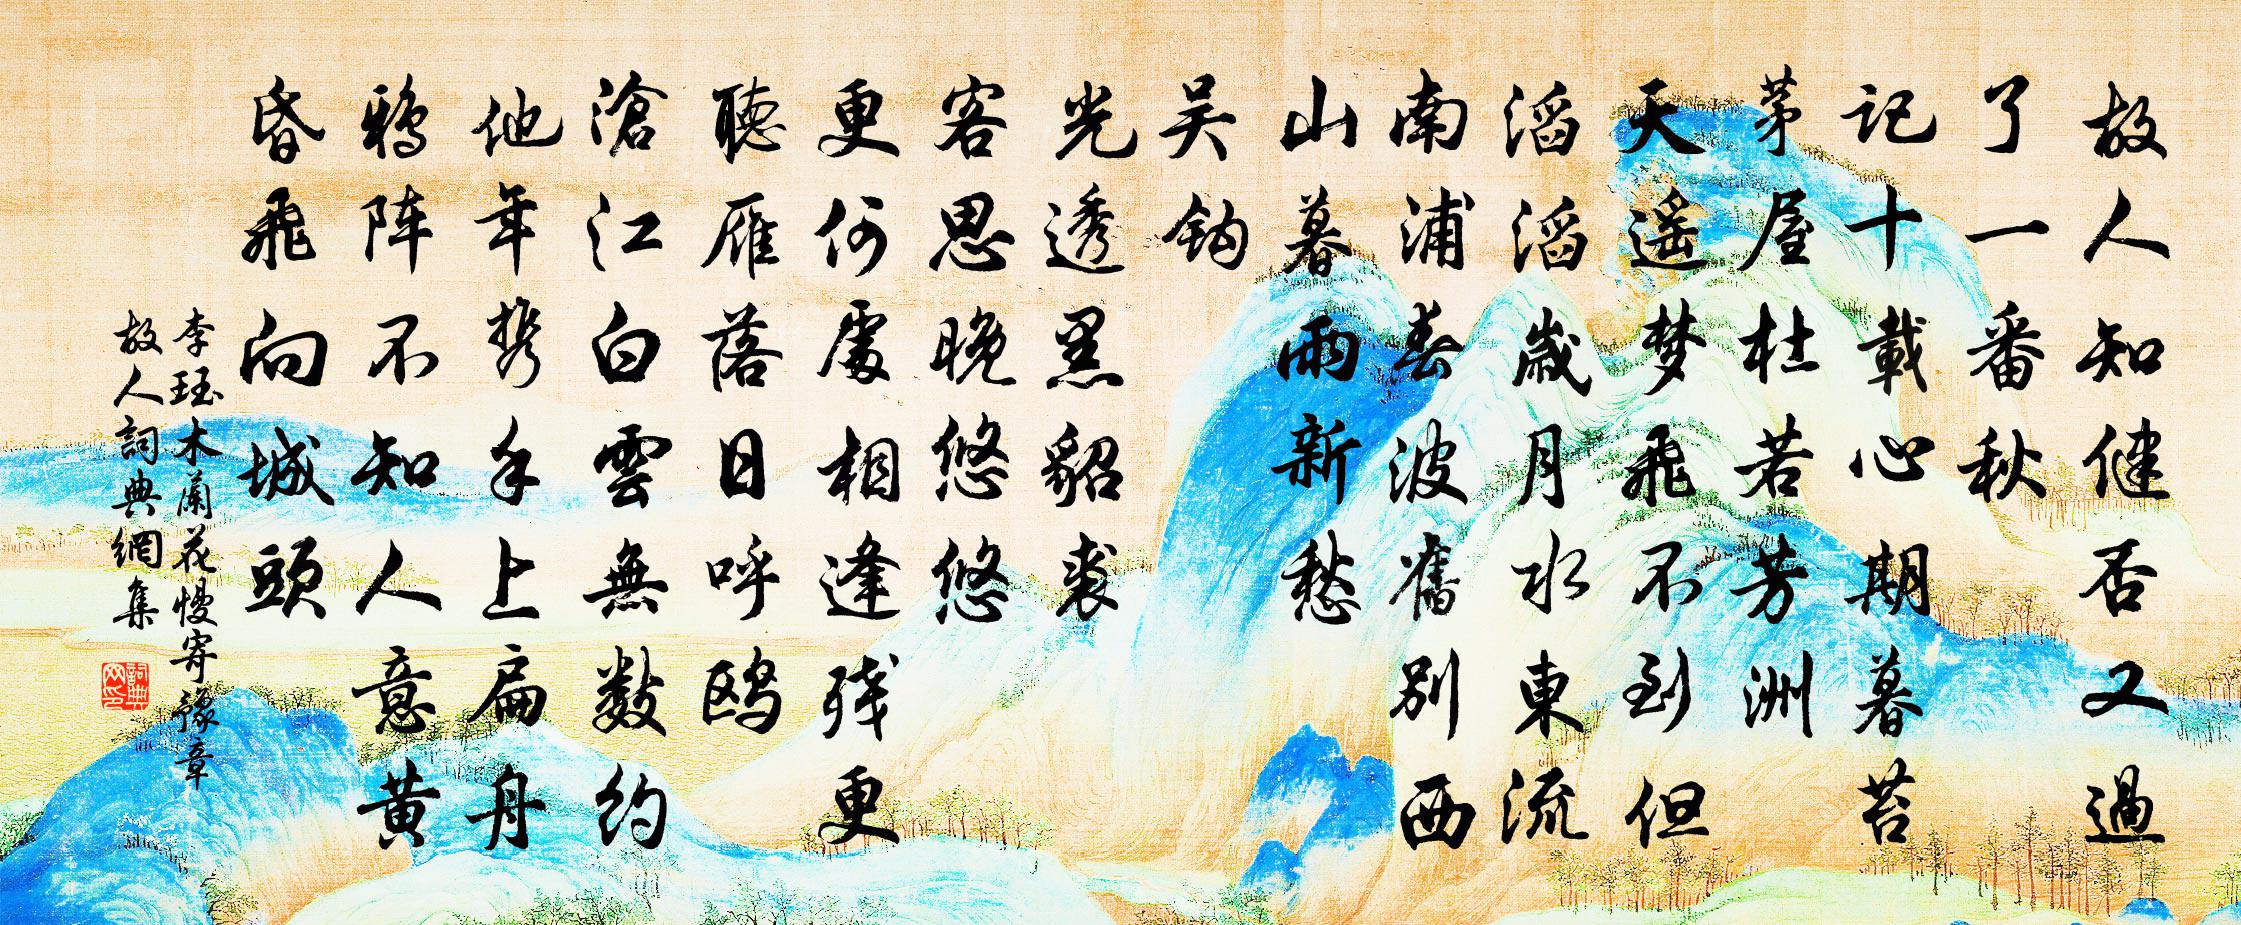 故人知健否又過
了一番秋
記十載心期暮苔
茅屋杜若芳洲
天遥梦飛不到但
滔滔歲月水東流
南浦春波舊别西
山暮雨新愁
吴钩
光透黑貂裘
客思晚悠悠
更何處相逢殘更
聽雁落日呼鸥
滄江白雲無数约
他年携手上扁舟
鸦阵不知人意黄
昏飛向城頭
李珏木蘭花慢寄豫章
故人詞典網集
詞典网印